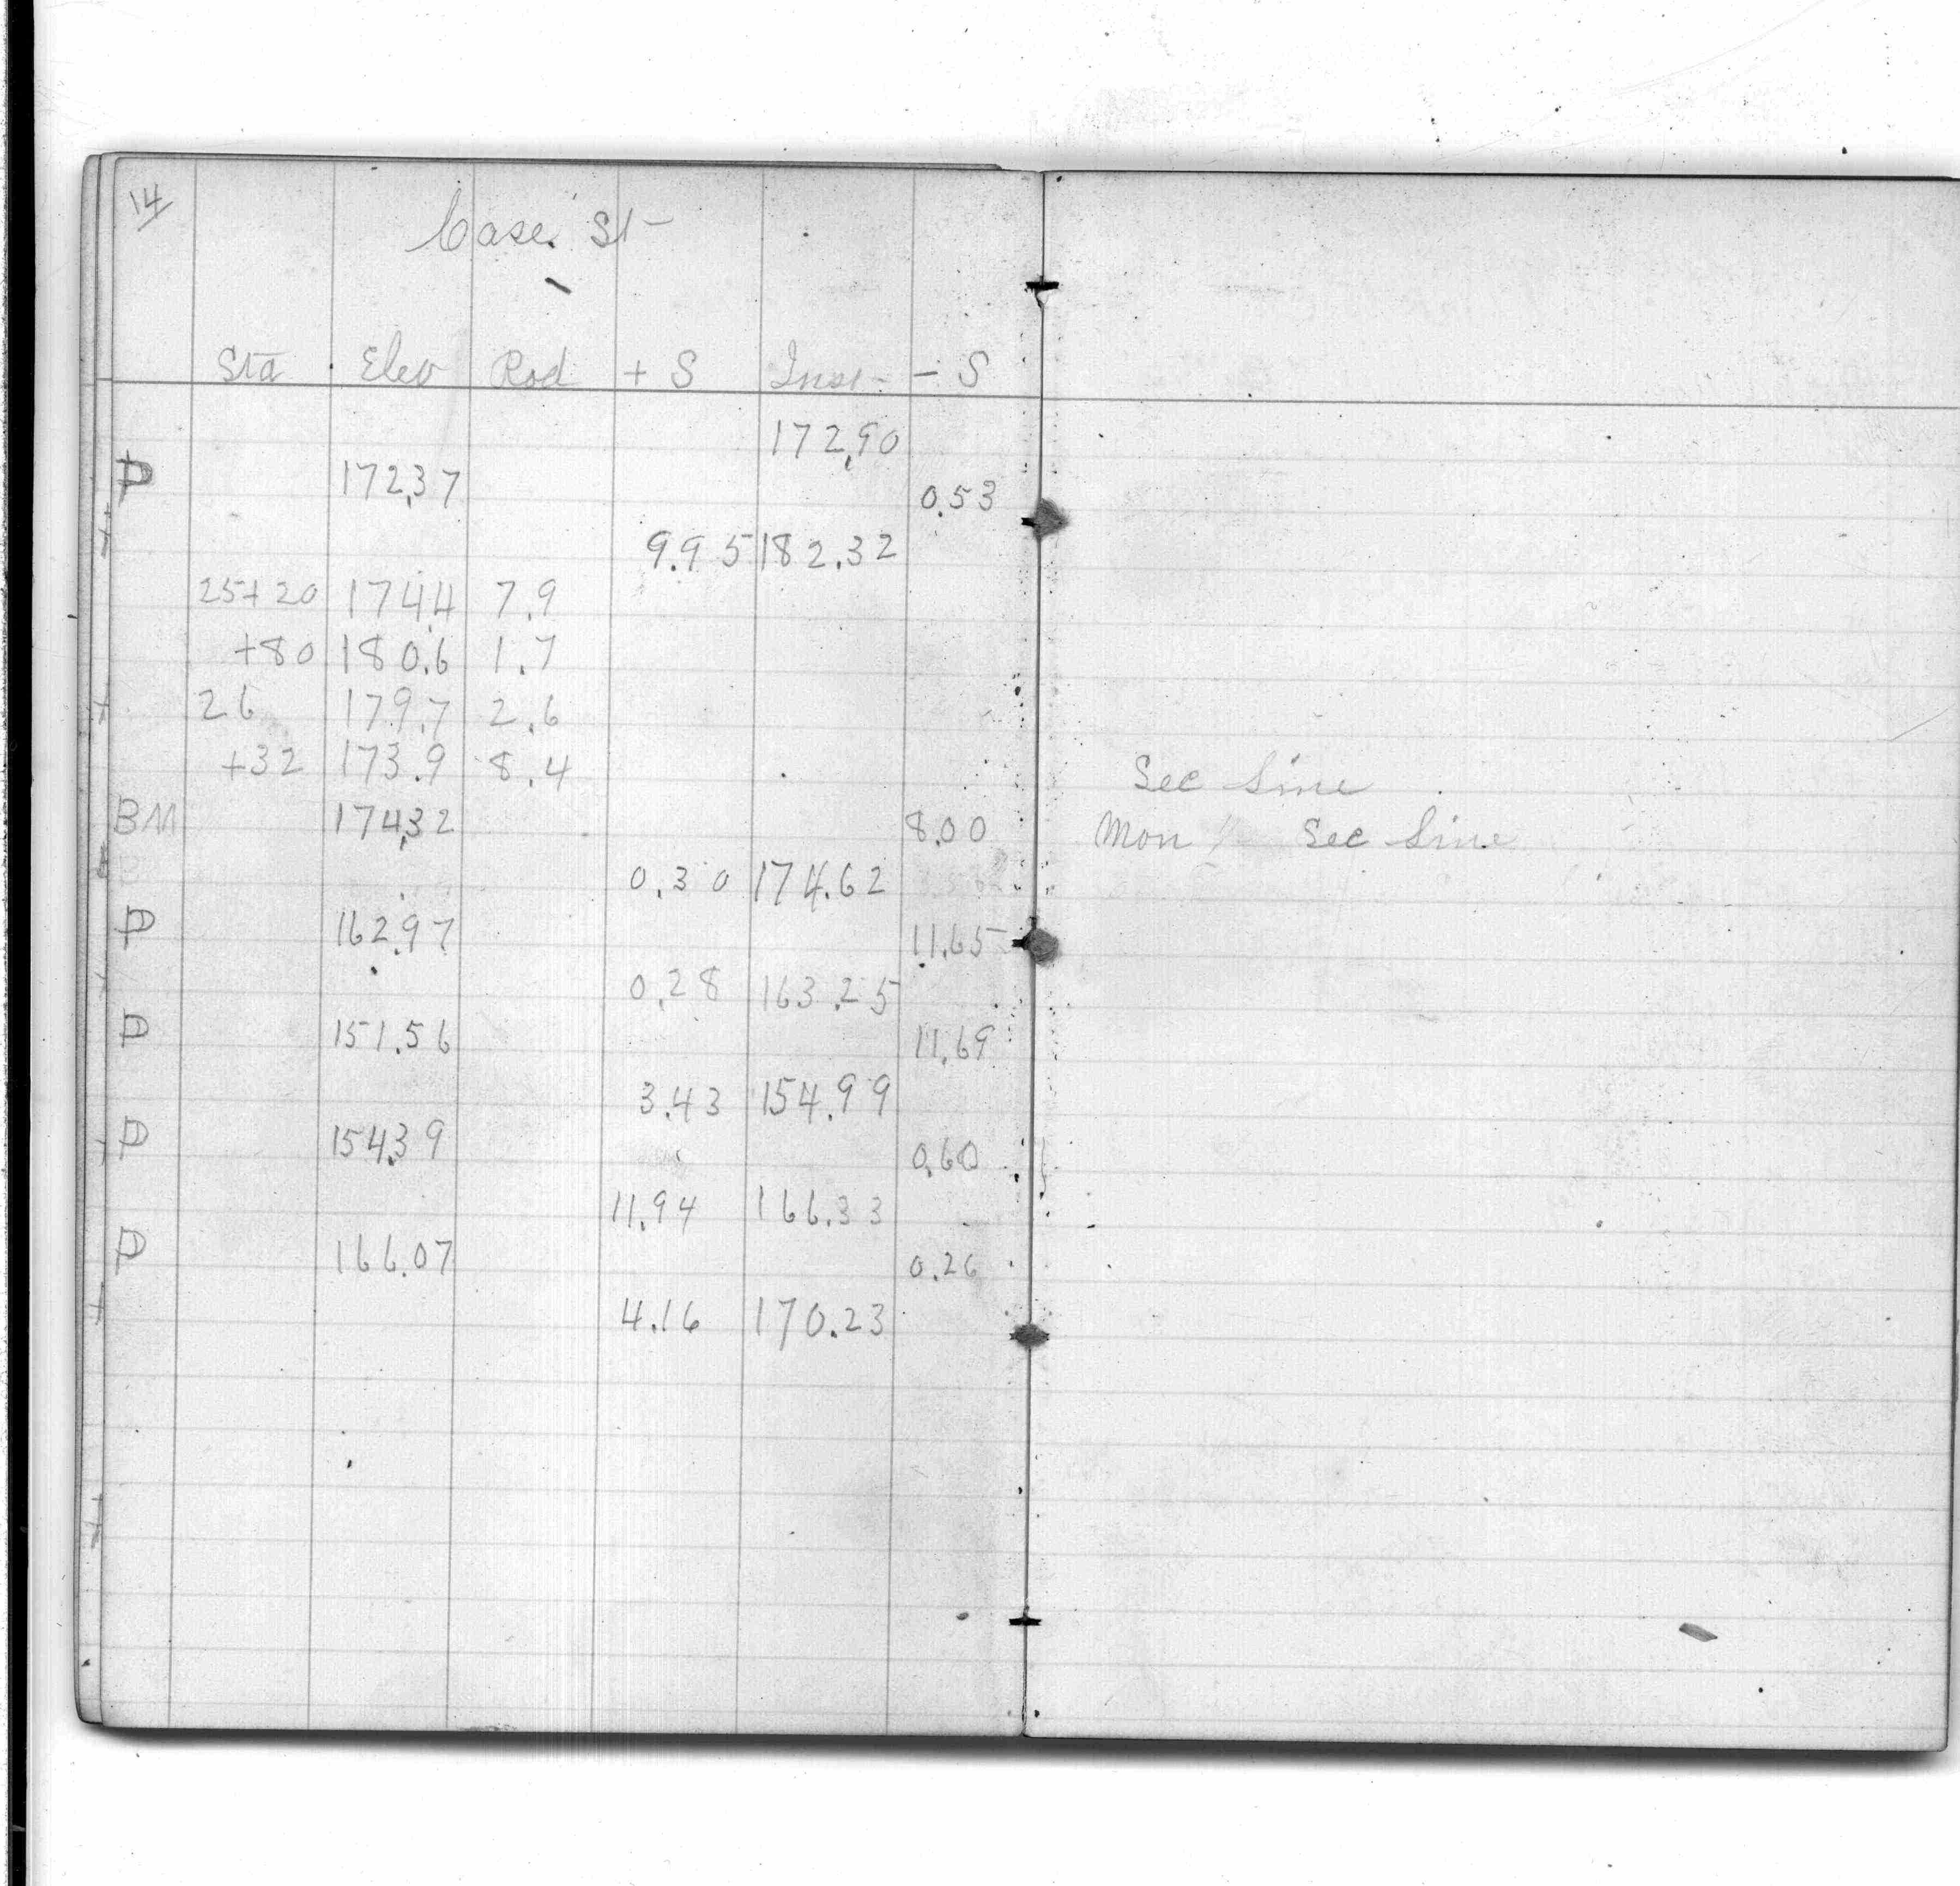 14
Case St
Sta Elev Rod + S Inst - S
172.90
P 172.37 0.53
9.95 182.32
25+20 174.4 7.9
+80 180.6 1.7
26 179.7 2.6
+32 173.9 8.4 Sec Line
BM 174.32 8.00 Mon Sec Line
0.30 174.62
P 162.97 11.65
0.28 163.25
P 151.56 11.69
3.43 154.99
P 154.39 0.60
11.94 166.33
P 166.07 0.26
4.16 170.23